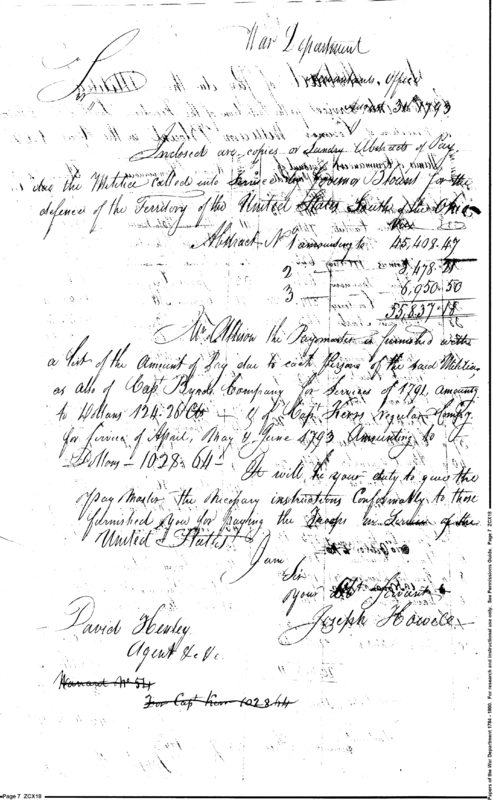 War Department
Accountants Office
August 31st 1793
Sir
Inclosed are copies of Sundry Abstracts of Pay
due the Militia called into Service by Governor Blount for the
defence of the Territory of the United States South of the Ohio
Viz
Abstract No 1 amounting to 45,408.47
2
3 6,950.50
55,837.18
Mr Allison the Paymaster is furnished with
a list of the Amount of Pay due to each Persons of the said Militia
as also of Capt Company for Services of 1791 amounts
to Dollars 124.26 Cts & of Capt Kerrs regular Compy
for Service of April, May & June 1793 Amounting to
Dollars 1028.64
It will be your duty to give the
Pay Master the necessary instructions Conformably to those
furnished you for paying the Troops in Service of the
United States
I am
Sir
Your Obt Servant
Joseph Howell
David Henley
Agent &c &c.
Warrant No 54
For Capt Kerr 1028.64
Page 7 ZCX18
Papers of the War Department 1784 - 1800. For research and instructional use only. See Permissions Guide. Page 7 ZCX18